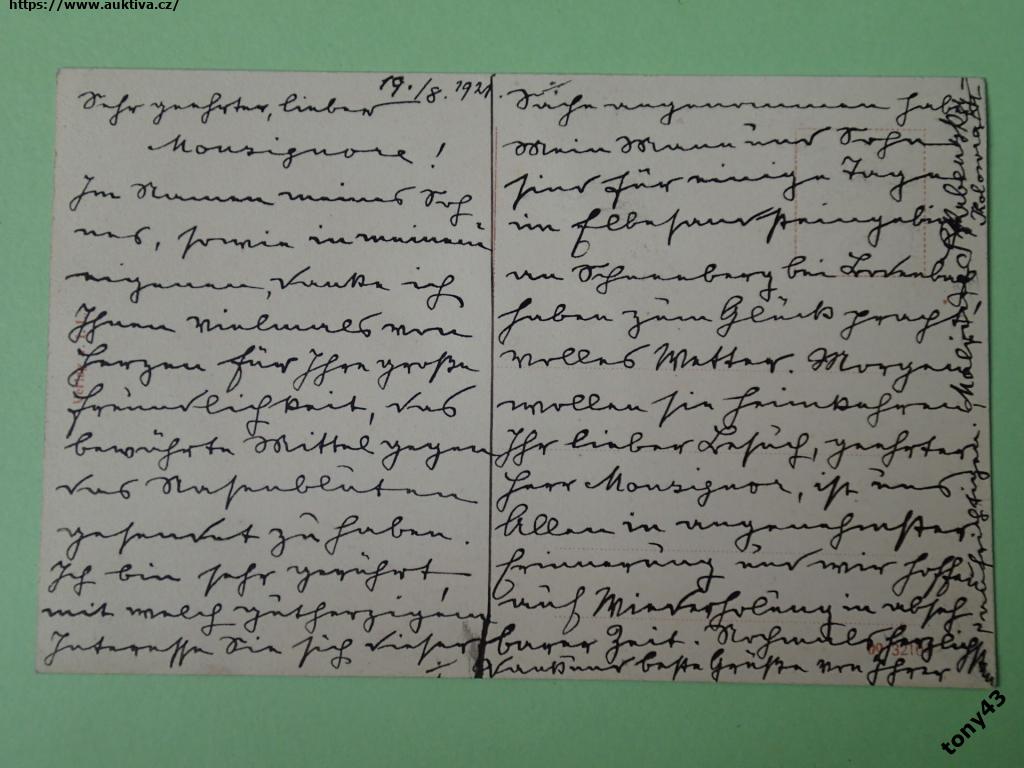 https://www.auktiva.cz/
19./8. 1921.
Sehr geehrter, lieber
Monsignore!
Im Namen meines Soh-
nes, sowie in meinem
eigenen, danke ich
Ihnen vielmals von
Herzen für Ihre große
Freundlichkeit, das
bewährte Mittel gegen
das Nasenbluten
gesendet zu haben.
Ich bin sehr gerührt,
mit welch gutherzigem
Interesse Sie sich dieser
./.
Sache angenommen haben
Mein Mann und Sohn
sind für einige Tage
im Elbesandsteingebirge
am Schneeberg bei Bodenbach
haben zum Glück pracht-
volles Wetter. Morgen
wollen sie heimkehren.
Ihr lieber Besuch, geehrter
Herr Monsignor, ist uns
Allen in angenehmster
Erinnerung und wir hoffen
auf Wiederholung in abseh-
barer Zeit. Nochmals herzlichsten
Dank und beste Grüße von Ihrer
aufrichtigen
tony43